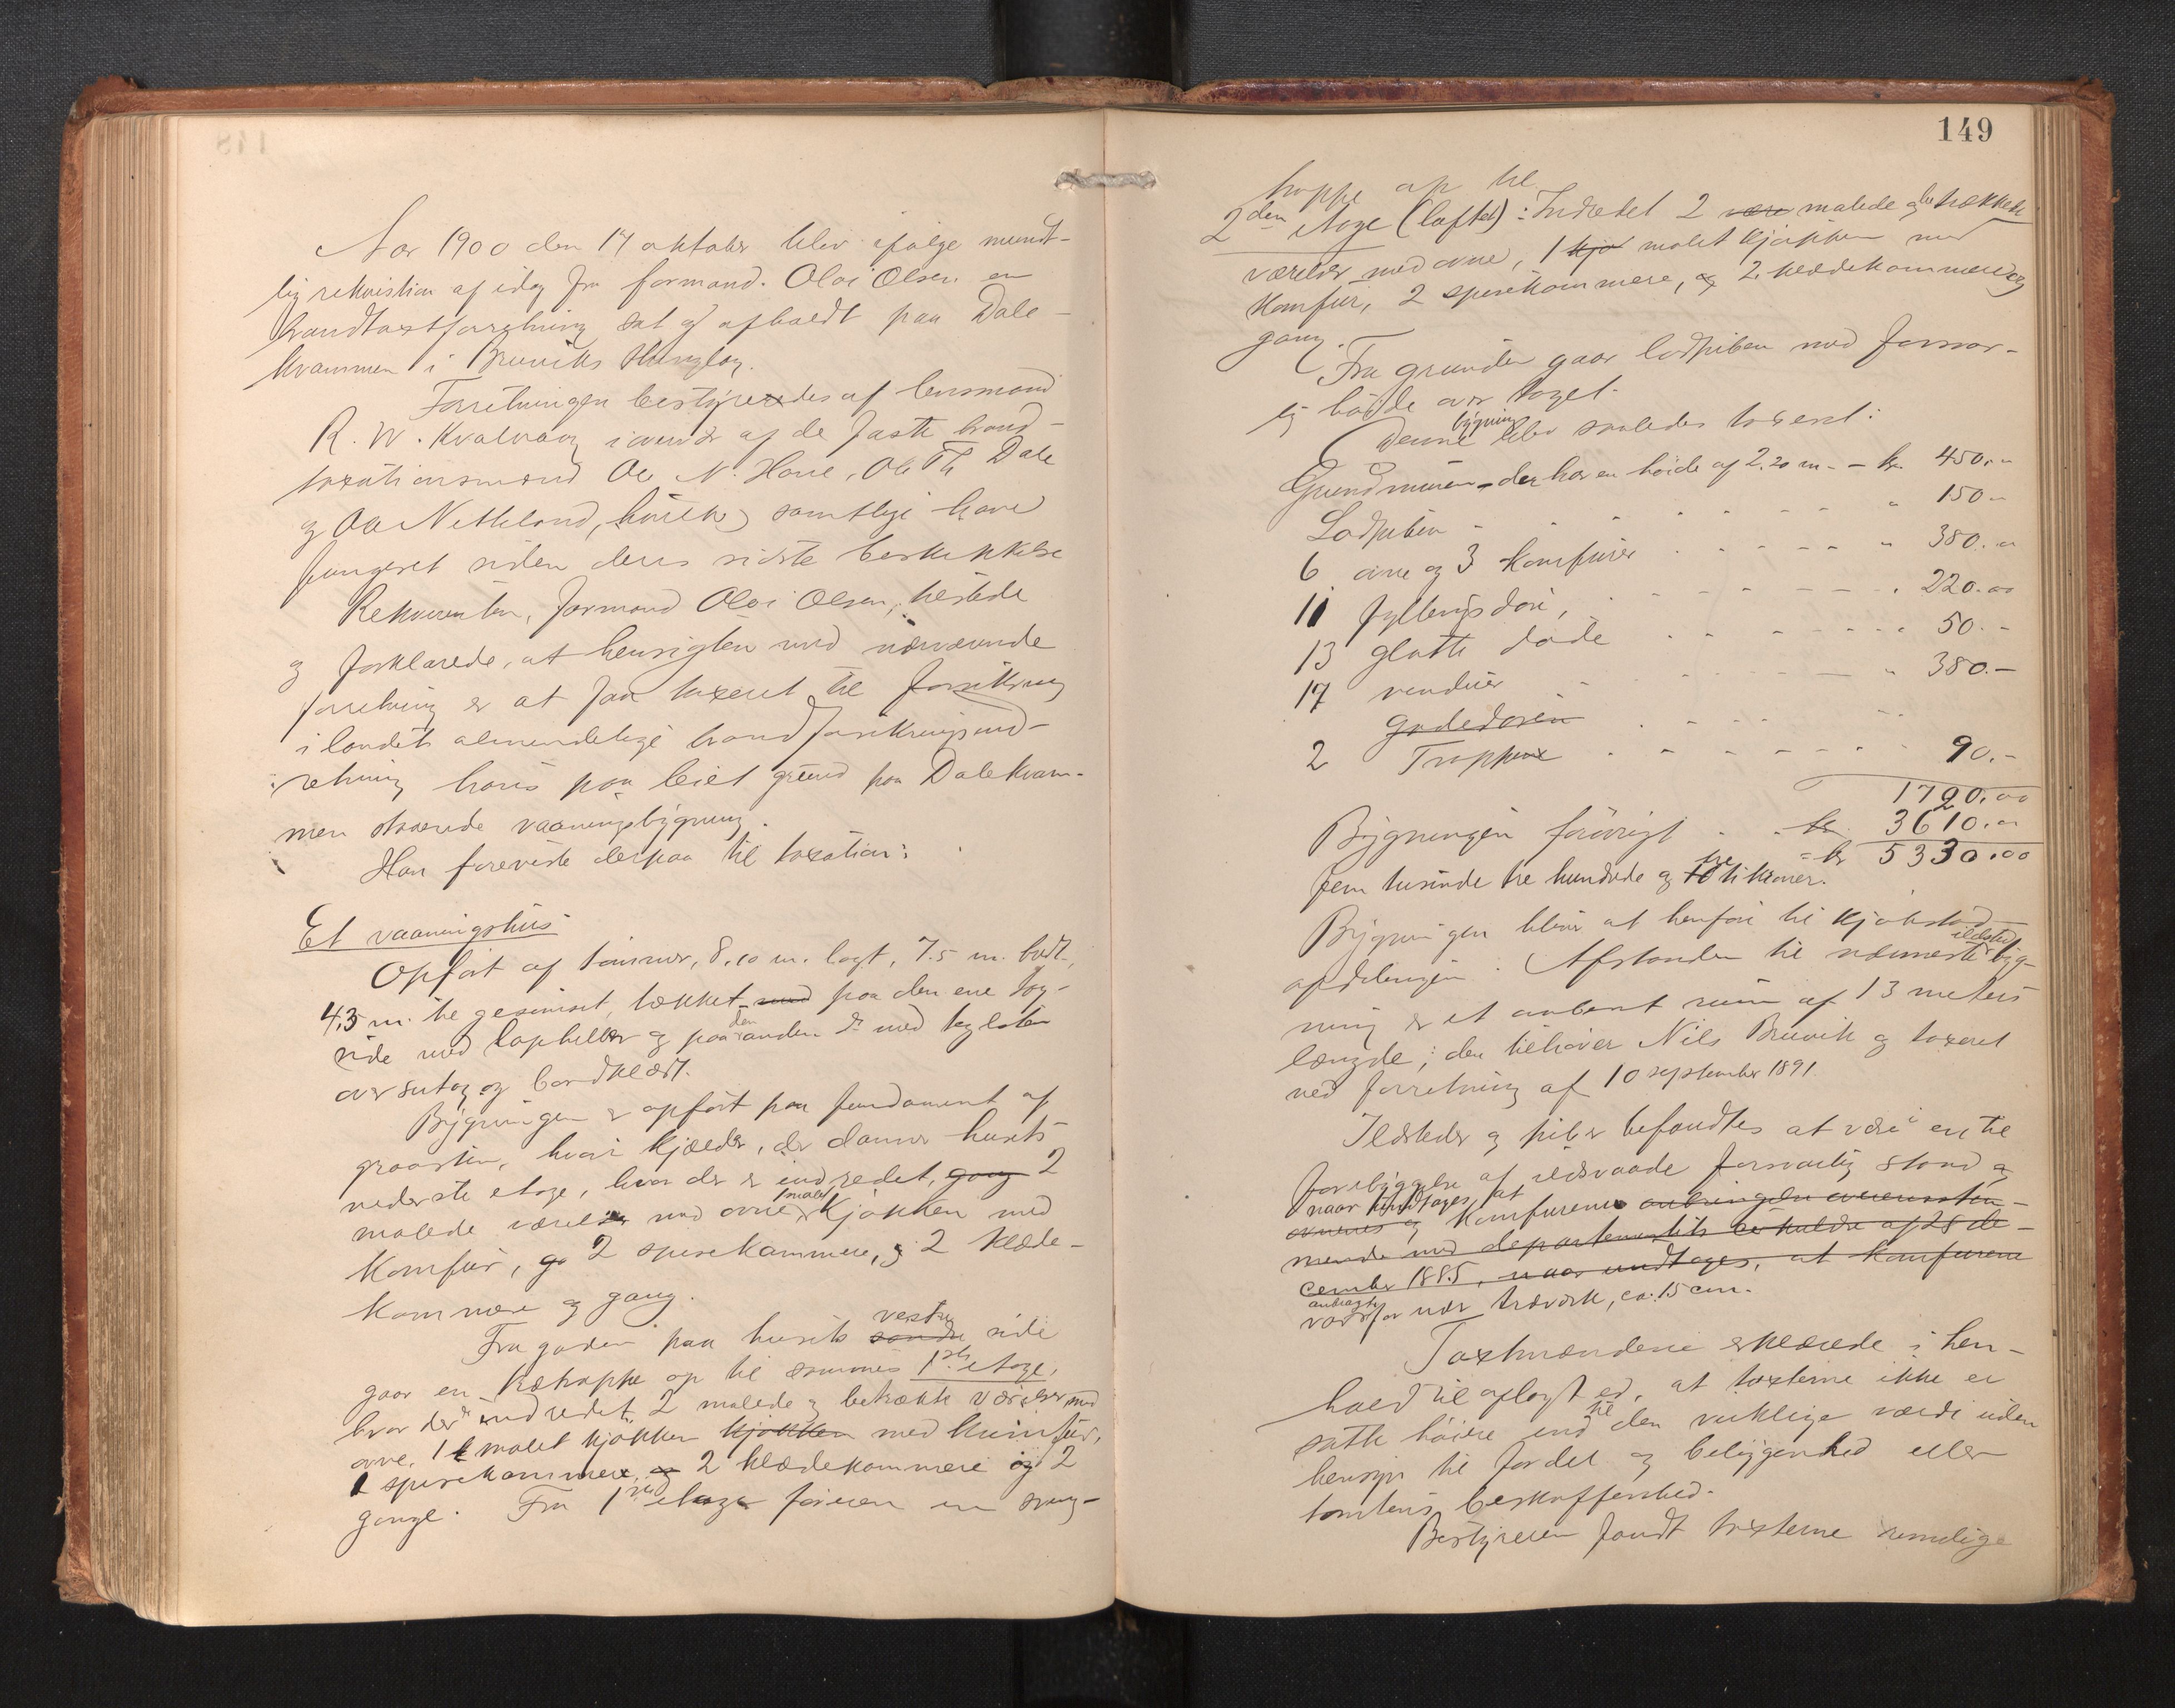 Aar 1900 den 17 oktober blev ifølge mundt-
lig rekvisition af idag fra formand Olai Olsen en
brandtaxtforretning sat og afholdt paa Dale-
kvammen i Bruviks thinglag.
Forretningen bestyredes af lensmand
R. W. Kvalvaag i overvær af de faste brand-
taxationsmænd Ole N. Hove, Ole Th Dale
og Ole Netteland, hvilke samtlige have
fungeret siden deres sidste beskikkelse
Rekvirenten, formand Olai Olsen, tilstede
og forklarede, at hensigten med nærværende
forretning er at faa taxeret til forsikring
i landets almindelige brandforsikringsind-
retning hans paa leiet grund paa Dalekvam-
men staaende vaaningsbygning.
Han foreviste derpaa til taxation:
Et vaaningshus
Opført af tømmer, 8.10 m. langt, 7.5 m. bredt,
4,3 m. til gesimset, tækket med paa den ene tag-
side med lapheller og paa den anden do med tagsten
over sutag og bordklædt.
Bygningen er opført paa fundament af
graasten, hvori kjælder, der danner husets
nederste etage, hvor der er indredet, gang 2
malede værelser med ovne, 1 malet kjøkken med
Komfur, og 2 spisekammere, og 2 klæde-
kammere og gang.
Fra gaden paa husets søndre vestre side
gaar en trætrappe op til sammes 1ste etage,
hvor der er indredet 2 malede og betrække værelser med
ovne, 1 malet kjøkken kjøkken med komfur,
1 spisekammere, og 2 klædekammere og 2
gange. Fra 1ste etage fører en sving-
149
trappe op til
2den etage (loftet): Indredet 2 være malede og betrækkede
værelser med ovne, 1 kjø malet kjøkken med
Komfur, 2 spisekammere, og 2 klædekammere og
gang.
Fra grunden gaar ladpiben med forsvar-
lig høide over taget.
Denne bygning blev saaledes taxeret:
Grundmuren, der har en høide af 2,20 m. - kr. 450,-
Ladpiben " 150 -
6 ovne og 3 komfurer " 380.00
11 fyldingsdøre, 220.00
13 glatte døde 50.-
17 vinduer " 380.-
gadedøren
2 Trapper 90.-
1720.00
Bygningen forøvrigt kr. 3610.00
= kr 5330.00
fem tusinde tre hundrede og 10 treti kroner.
Bygningen bliver at henføre til kjøbstad-
afdelingen. Afstanden til nærmeste ildsted byg-
ning er et aabent rum af 13 meters
længde; den tilhører Nils Bruvik og taxeret
ved forretning af 10 september 1891.
Ildsteder og piber befandtes at være i en til
forebyggelse af ildsvaade forsvarlig stand og
naar undtages, at
ovnenes og Komfurene anbringelse overensstem-
mende med departementets cirkulære af 28 de-
cember 1885, naar undtages, at komfurene
var anbragte for nær træværk, ca. 15 cm.
Taxtmændene erklærede i hen-
hold til aflagt ed, at taxterne ikke er
satte høiere end til den virklige værdi uden
hensyn til fordel og beliggenhed eller
tomtens beskaffenhed.
Bestyreren fandt taxterne rimelige